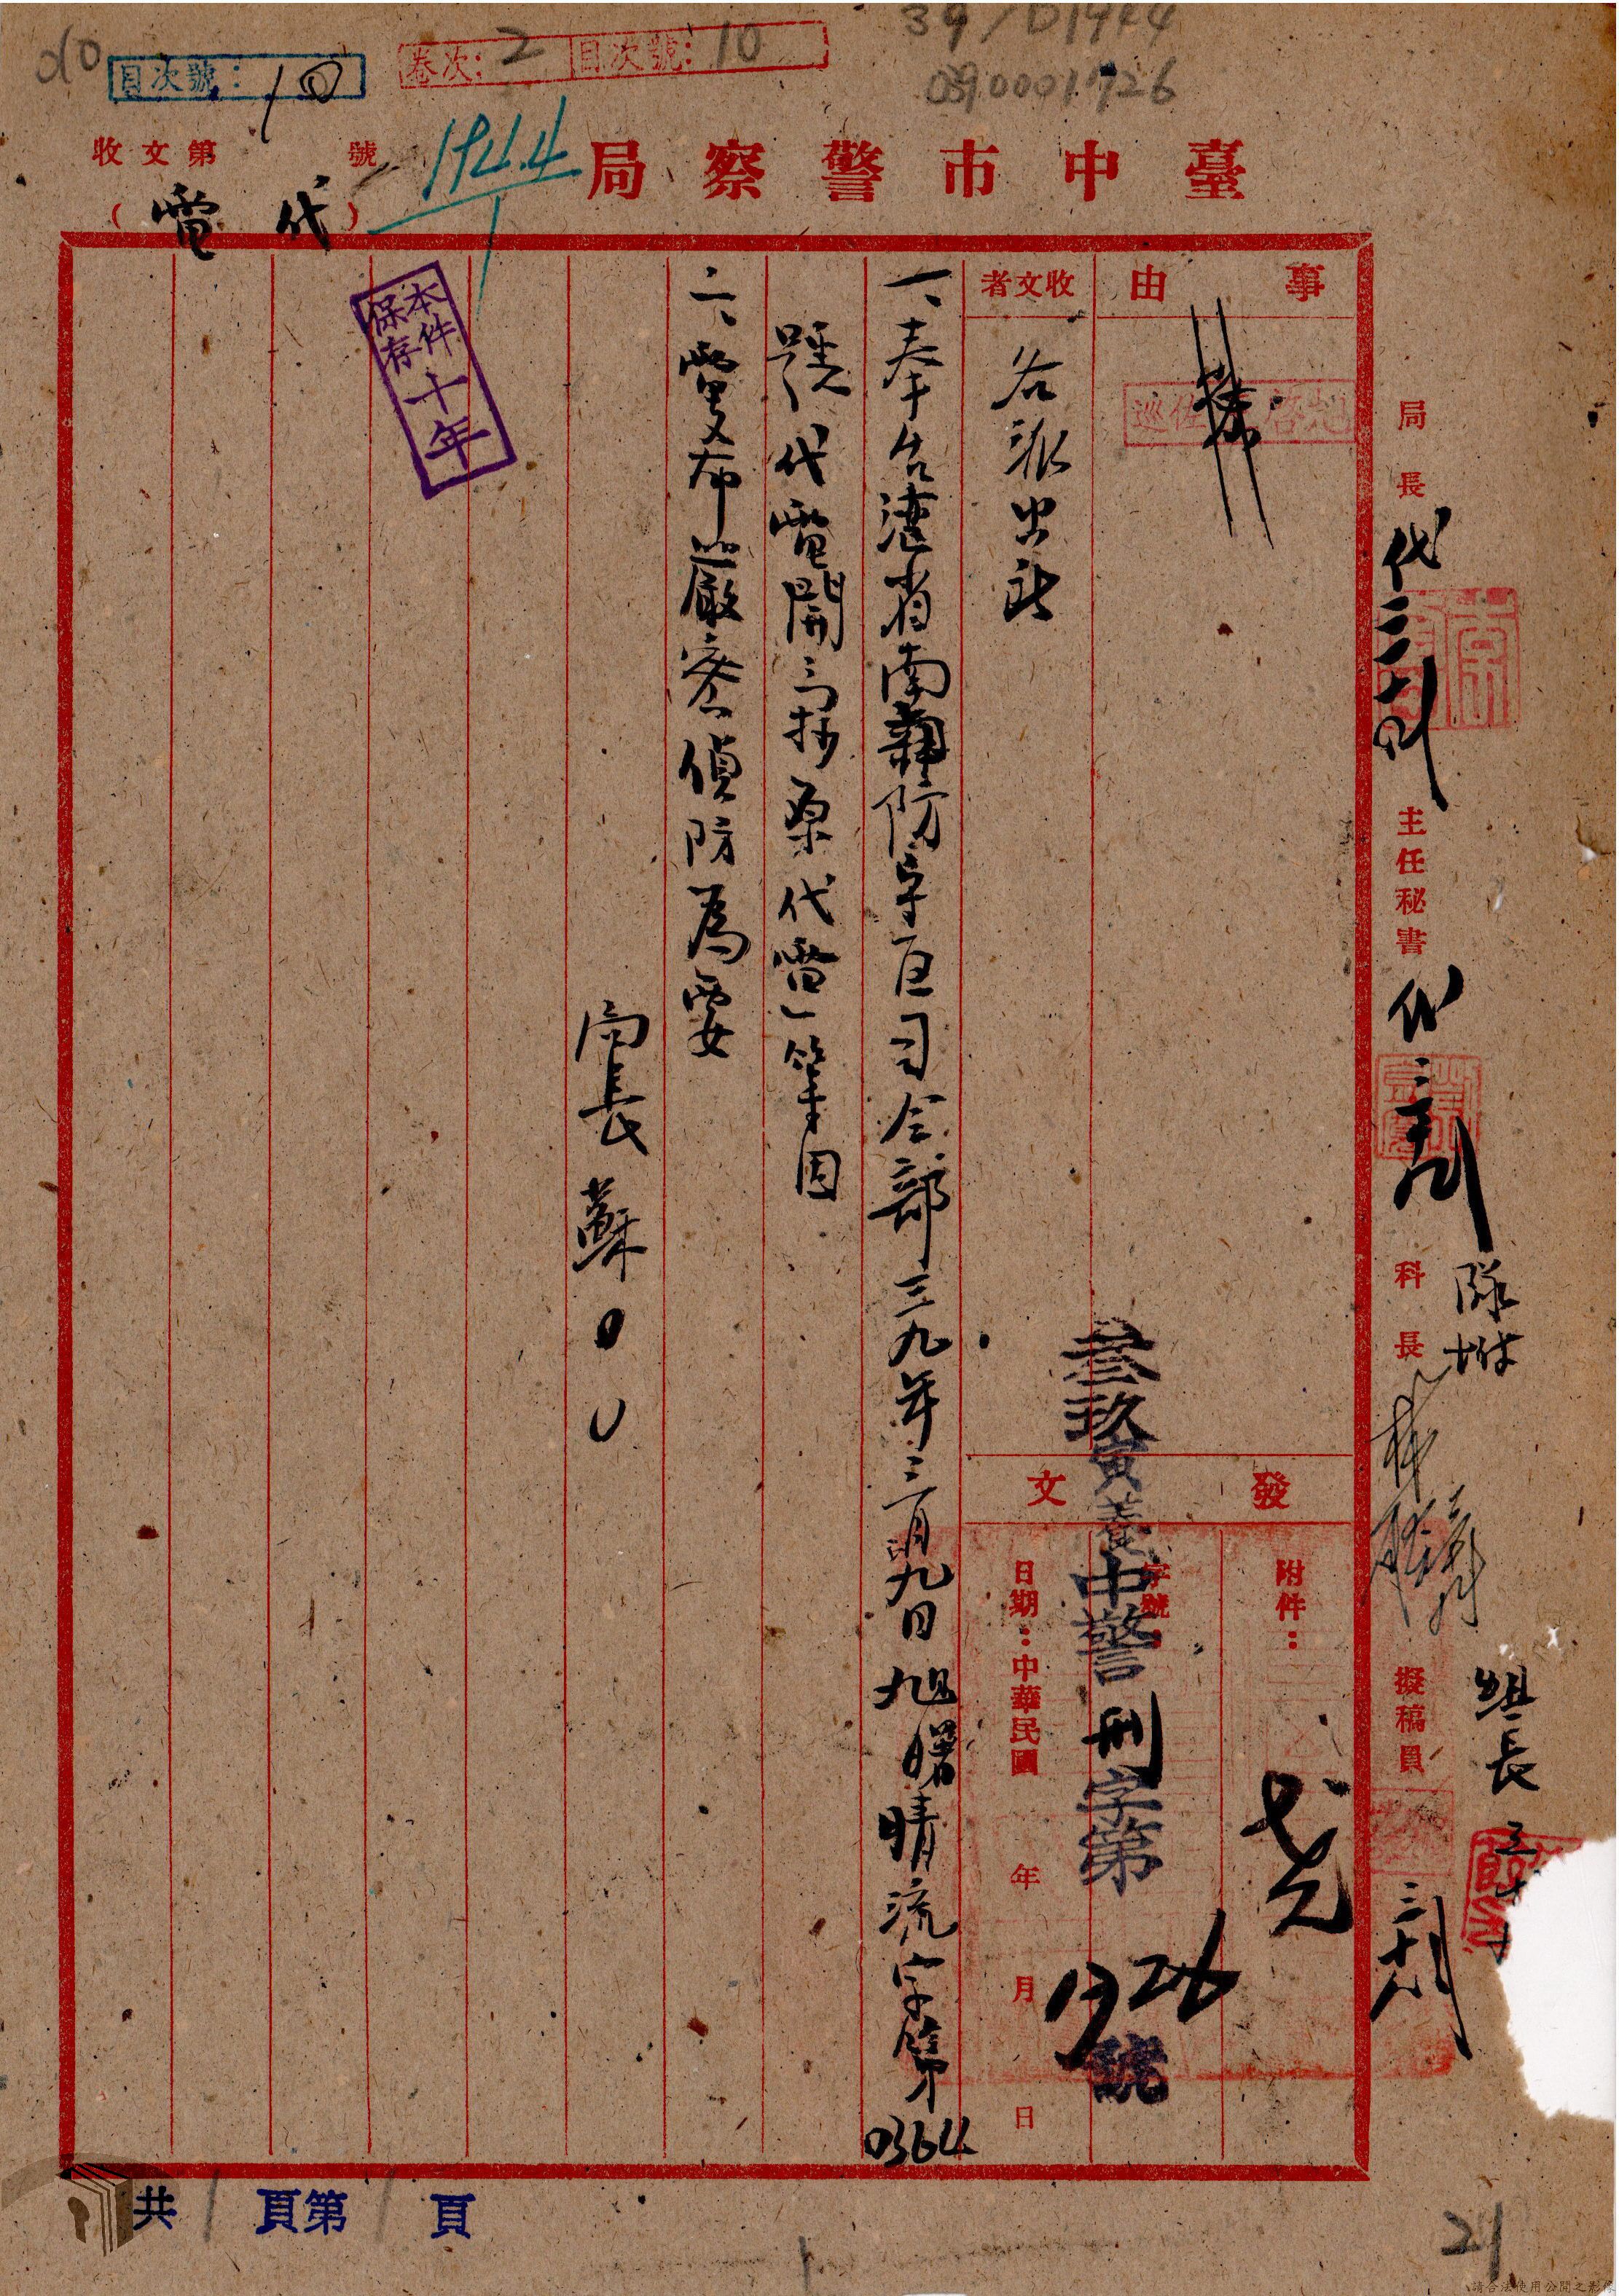 39/D1944
0390001926
卷次:2 目次號:10
目次號:10
臺中市警察局
1944
收文第 號
(代電)
事由
收文者
各派出所
一、奉台灣省南部防守區司令部三九年三月九日旭曙晴流字第0364
號代電開:「抄原代電」等因
二、電希嚴密偵防為要
局長蘇
本件保存十年
發文
附件:
字號
叁玖寅養中警刑字第1926號
日期:中華民國 年 月 日
局長
代
主任秘書
代
科長
隊附
擬稿員
組長
共1頁第1頁
21
請合法使用公開之影像